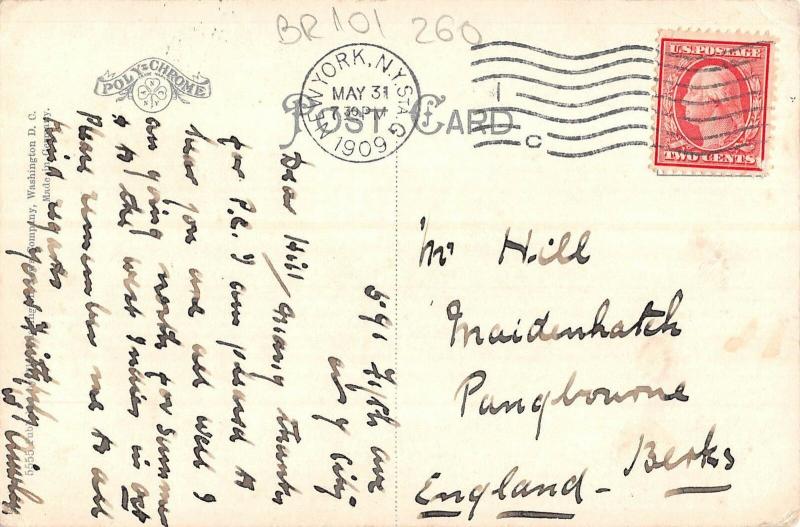 BR101 260
POLY-CHROME
NEW YORK, N.Y. STA. G.
MAY 31
7 30 PM
1909
POST CARD
C
U.S. POSTAGE
TWO CENTS
Company, Washington D. C.
Made in Germany.
5555 Pub
Mr Hill
Maidenhatch
Pangbourne
Berks
England
591 Fifth ave
City.
Dear Hill, Many thanks
for P.C. I am pleased to
hear you are all well I
am going north for summer
& to the West Indies in Oct
Please remember me to all
Kind regards
yours faithfully